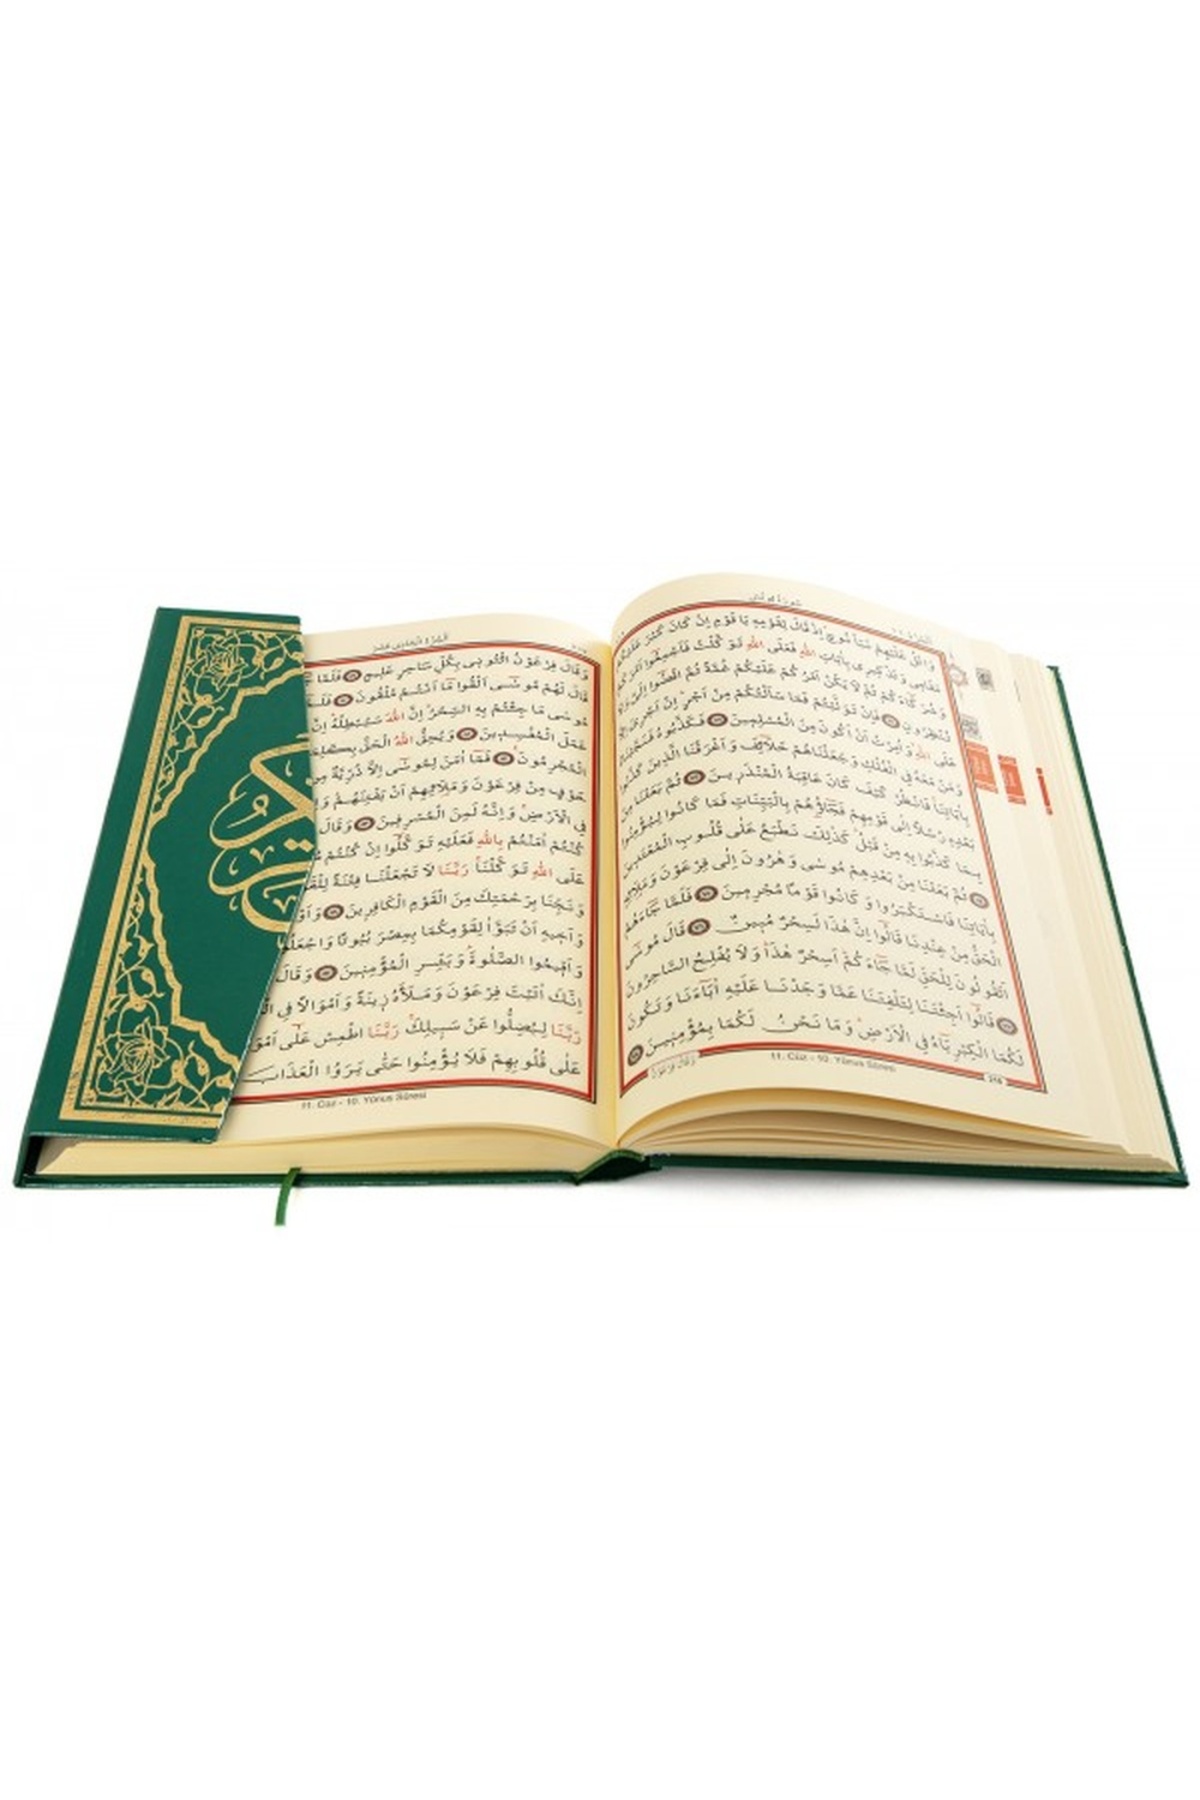 سُورَةُ يُونُسَ
وَاتْلُ عَلَيْهِمْ نَبَاَ نُوحٍ اِذْ قَالَ لِقَوْمِهِ يَا قَوْمِ اِنْ كَانَ كَبُرَ عَلَيْكُمْ
مَقَامِي وَتَذْكِيرِي بِاٰيَاتِ اللهِ فَعَلَى اللهِ تَوَكَّلْتُ فَاَجْمِعُوا اَمْرَكُمْ
وَشُرَكَاءَكُمْ ثُمَّ لَا يَكُنْ اَمْرُكُمْ عَلَيْكُمْ غُمَّةً ثُمَّ اقْضُوا اِلَيَّ وَلَا
تُنْظِرُونِ فَاِنْ تَوَلَّيْتُمْ فَمَا سَاَلْتُكُمْ مِنْ اَجْرٍ اِنْ اَجْرِيَ اِلَّا
عَلَى اللهِ وَاُمِرْتُ اَنْ اَكُونَ مِنَ الْمُسْلِمِينَ فَكَذَّبُوهُ فَنَجَّيْنَاهُ
وَمَنْ مَعَهُ فِي الْفُلْكِ وَجَعَلْنَاهُمْ خَلَائِفَ وَاَغْرَقْنَا الَّذِينَ كَذَّبُوا
بِاٰيَاتِنَا فَانْظُرْ كَيْفَ كَانَ عَاقِبَةُ الْمُنْذَرِينَ ثُمَّ بَعَثْنَا مِنْ
بَعْدِهِ رُسُلًا اِلٰى قَوْمِهِمْ فَجَاؤُهُمْ بِالْبَيِّنَاتِ فَمَا كَانُوا لِيُؤْمِنُوا
بِمَا كَذَّبُوا بِهِ مِنْ قَبْلُ كَذٰلِكَ نَطْبَعُ عَلٰى قُلُوبِ الْمُعْتَدِينَ
ثُمَّ بَعَثْنَا مِنْ بَعْدِهِمْ مُوسٰى وَهٰرُونَ اِلٰى فِرْعَوْنَ وَمَلَائِهِ
بِاٰيَاتِنَا فَاسْتَكْبَرُوا وَكَانُوا قَوْمًا مُجْرِمِينَ فَلَمَّا جَاءَهُمُ
الْحَقُّ مِنْ عِنْدِنَا قَالُوا اِنَّ هٰذَا لَسِحْرٌ مُبِينٌ قَالَ مُوسٰى
اَتَقُولُونَ لِلْحَقِّ لَمَّا جَاءَكُمْ اَسِحْرٌ هٰذَا وَلَا يُفْلِحُ السَّاحِرُونَ
قَالُوا اَجِئْتَنَا لِتَلْفِتَنَا عَمَّا وَجَدْنَا عَلَيْهِ اٰبَاءَنَا وَتَكُونَ
لَكُمَا الْكِبْرِيَاءُ فِي الْاَرْضِ وَمَا نَحْنُ لَكُمَا بِمُؤْمِنِينَ
وَقَالَ فِرْعَوْنُ
11. Cüz - 10. Yûnus Sûresi
اَلْجُزْءُ الْحَادِي عَشَرَ
وَقَالَ فِرْعَوْنُ ائْتُونِي بِكُلِّ سَاحِرٍ عَلِيمٍ فَلَمَّا
قَالَ لَهُمْ مُوسٰى اَلْقُوا مَا اَنْتُمْ مُلْقُونَ
مُوسٰى مَا جِئْتُمْ بِهِ السِّحْرُ اِنَّ اللهَ سَيُبْطِلُهُ اِنَّ
عَمَلَ الْمُفْسِدِينَ وَيُحِقُّ اللهُ الْحَقَّ
الْمُجْرِمُونَ فَمَا اٰمَنَ لِمُوسٰى اِلَّا ذُرِّيَّةٌ مِنْ
خَوْفٍ مِنْ فِرْعَوْنَ وَمَلَائِهِمْ اَنْ يَفْتِنَهُمْ
فِي الْاَرْضِ وَاِنَّهُ لَمِنَ الْمُسْرِفِينَ وَقَالَ
كُنْتُمْ اٰمَنْتُمْ بِاللهِ فَعَلَيْهِ تَوَكَّلُوا اِنْ كُنْتُمْ
عَلَى اللهِ تَوَكَّلْنَا رَبَّنَا لَا تَجْعَلْنَا فِتْنَةً
وَنَجِّنَا بِرَحْمَتِكَ مِنَ الْقَوْمِ الْكَافِرِينَ
وَاَخِيهِ اَنْ تَبَوَّاٰ لِقَوْمِكُمَا بِمِصْرَ بُيُوتًا وَاجْعَلُوا
وَاَقِيمُوا الصَّلٰوةَ وَبَشِّرِ الْمُؤْمِنِينَ وَقَالَ
اِنَّكَ اٰتَيْتَ فِرْعَوْنَ وَمَلَاَهُ زِينَةً وَاَمْوَالًا فِي
رَبَّنَا لِيُضِلُّوا عَنْ سَبِيلِكَ رَبَّنَا اطْمِسْ عَلٰى
عَلٰى قُلُوبِهِمْ فَلَا يُؤْمِنُوا حَتّٰى يَرَوُا الْعَذَابَ
11. Cüz - 10. Yûnus Sûresi